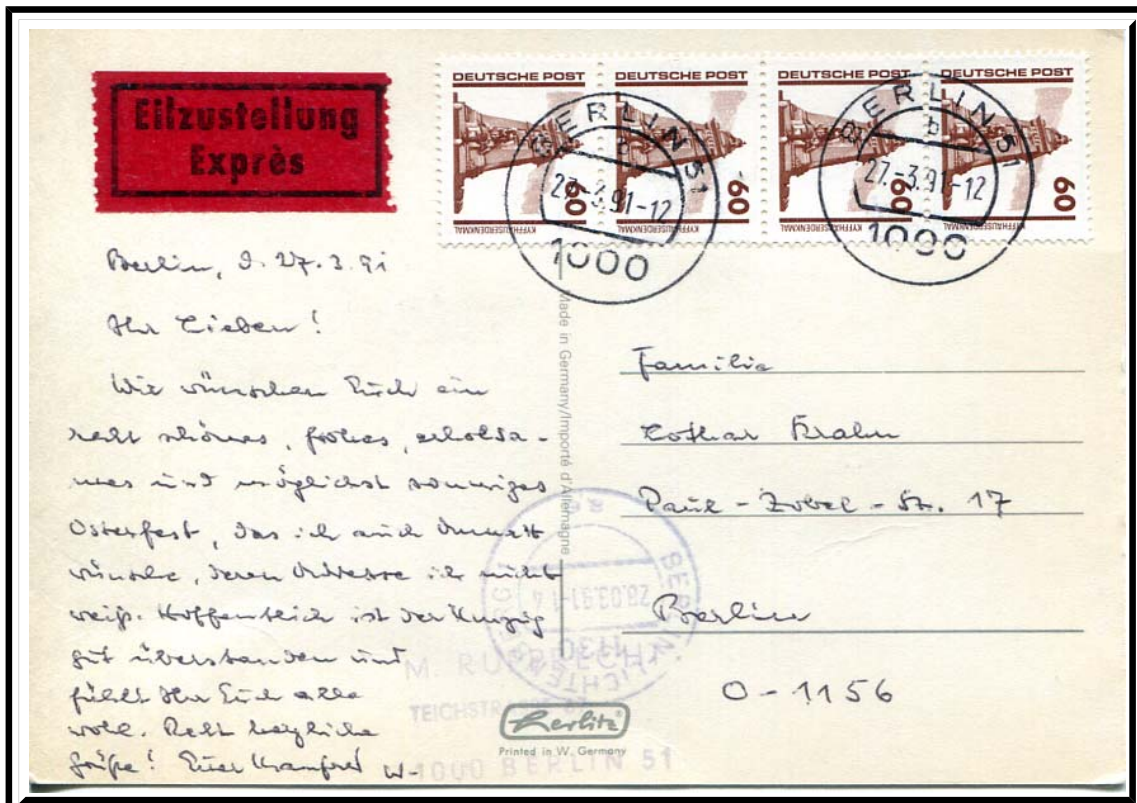 Eilzustellung
Exprès
DEUTSCHE POST DEUTSCHE POST DEUTSCHE POST DEUTSCHE POST
60 60 60 60
KYFFHÄUSERDENKMAL KYFFHÄUSERDENKMAL KYFFHÄUSERDENKMAL KYFFHÄUSERDENKMAL
BERLIN 51
b
27.-3.91-12
1000
BERLIN 51
b
27.-3.91-12
1000
Berlin, d. 27.3.91
Ihr Lieben!
Wir wünschen Euch ein
recht schönes, frohes, erholsa-
mes und möglichst sonniges
Osterfest, das ich auch
wünsche, deren Adresse ich nicht
weiß. Hoffentlich ist der Umzug
gut überstanden und
fühlt Ihr Euch alle
wohl. Recht herzliche
Grüße! Euer Manfred
Made in Germany/Importé d'Allemagne
Familie
Lothar Krahn
Paul-Zobel-Str. 17
Berlin
O-1156
BERLIN-LICHTENBERG 1
28.03.91-14
1130
M. RUPPRECHT
TEICHSTRASSE
W-1000 BERLIN 51
Herlitz
Printed in W. Germany